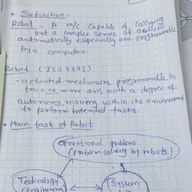 • Definition -
Robot - A m/c capable of carrying
out a complex series of actions
automatically especially one programmable
by a computer.
Robot (ISO 8373)
- actuated mechanism programmable in
two or more axes with a degree of
autonomy, moving within its environment
to perform intended tasks.
• Main task of Robot
Operational problems
(problem solving by robots)
Technology
System